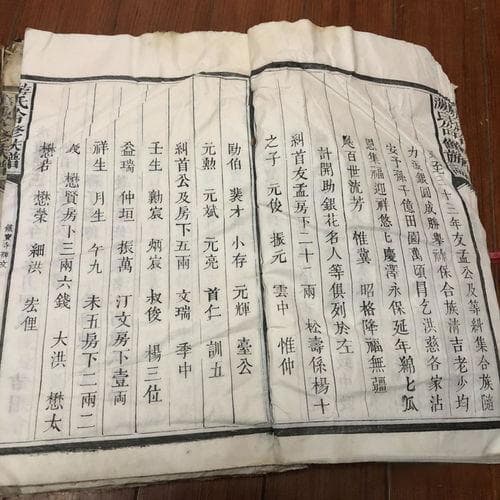 至二十三年友孟公及等糾集合族
力金銀圓成勝舉禱保合族清吉老少均
安予孫千億田園萬頃再乞洪慈各家沾
恩集福迎祥悠乆慶濤永保延年綿乆瓜
瓞百世流芳 惟冀 昭格降福無疆
計開助銀花名人等俱列於左
糾首友孟房下二十二兩 松壽係楊十
之子 元俊 振元 雲中 惟仲
助伯 裴才 小存 元輝 臺公
元勲 元斌 元亮 首仁 訓五
糾首公及房下五兩 文瑞 季中
壬生 勳宸 烟宸 叔俊 楊三位
益瑞 仲垣 振萬 汀文房下壹両
祥生 月生 午九 未五房下二兩二
戔 懋賢房下三兩六錢 大洪 懋太
懋若 懋榮 細洪 宏俚
氏合修族譜